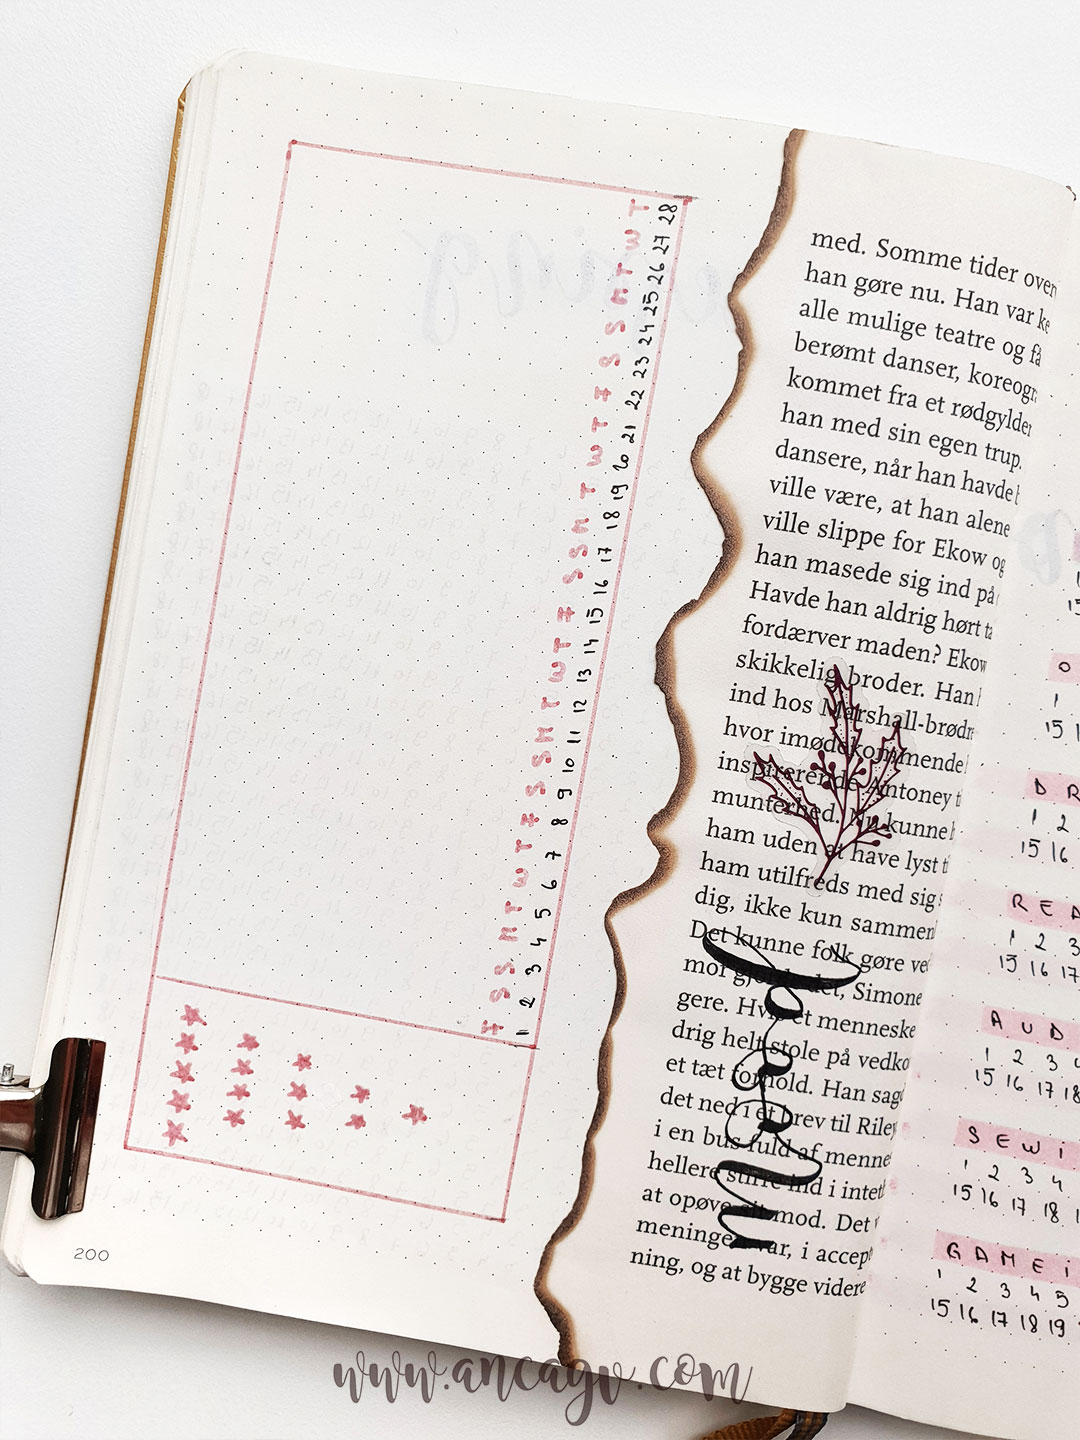 F S S M T W T F S S M T W T F S S M T W T F S S M T W T
1 2 3 4 5 6 7 8 9 10 11 12 13 14 15 16 17 18 19 20 21 22 23 24 25 26 27 28
200
med. Somme tider over
han gøre nu. Han var ke
alle mulige teatre og få
berømt danser, koreogr
kommet fra et rødgylden
han med sin egen trup.
dansere, når han havde
ville være, at han alene
ville slippe for Ekow og
han masede sig ind på
Havde han aldrig hørt ta
fordærver maden? Ekow
skikkelig broder. Han
ind hos Marshall-brødr
hvor imødekommende
inspirerende Antoney
munterhed. Nu kunne
ham uden at have lyst
ham utilfreds med sig
dig, ikke kun sammen
Det kunne folk gøre ved
mor gjorde det, Simone
gere. Hvis et menneske
drig helt stole på vedko
et tæt forhold. Han sagd
det ned i et brev til Riley
i en bus fuld af menne
hellere stirre ind i intet
at opøve sit mod. Det
meningen var, i accept
ning, og at bygge videre
15
O
1
15 1
D R
1 2
15 16
R E A
1 2 3
15 16 17
A U D
1 2 3 4
15 16 17 18
S E W I
1 2 3 4
15 16 17 18 1
G A M E I
1 2 3 4 5
15 16 17 18 19
www.ancagv.com